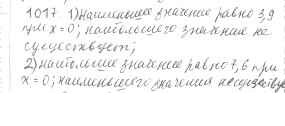 1017. 1) Наименьшее значение равно 3,9
при x = 0; наибольшего значения не
существует;
2) наибольшее значение равно 7,6 при
x = 0; наименьшего значения не существуе